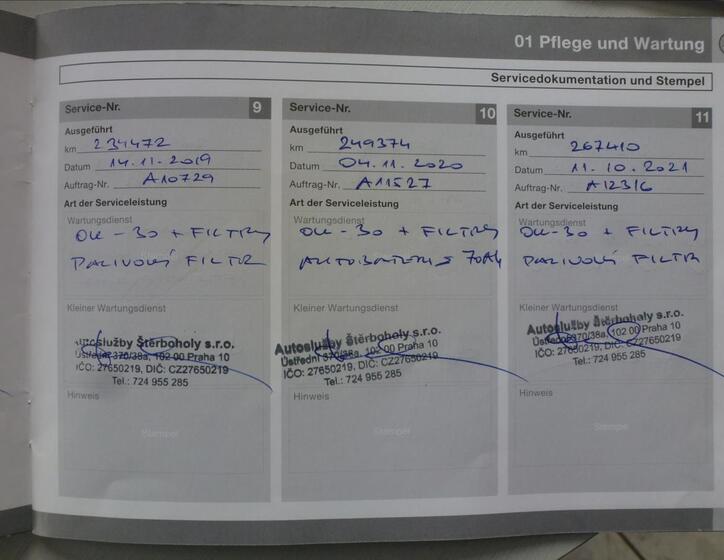 01 Pflege und Wartung
Servicedokumentation und Stempel
Service-Nr. 9
Ausgeführt
km 234472
Datum 14.11.2019
Auftrag-Nr. A10729
Art der Serviceleistung
Wartungsdienst
OW-30 + FILTRY
PALIVOVÝ FILTR
Kleiner Wartungsdienst
Autoslužby Štěrboholy s.r.o.
Ústřední 370/38a, 102 00 Praha 10
IČO: 27650219, DIČ: CZ27650219
Tel.: 724 955 285
Hinweis
Stempel
Service-Nr. 10
Ausgeführt
km 249374
Datum 04.11.2020
Auftrag-Nr. A11527
Art der Serviceleistung
Wartungsdienst
OW-30 + FILTRY
AUTOBATERIE 70Ah
Kleiner Wartungsdienst
Autoslužby Štěrboholy s.r.o.
Ústřední 370/38a, 102 00 Praha 10
IČO: 27650219, DIČ: CZ27650219
Tel.: 724 955 285
Hinweis
Stempel
Service-Nr. 11
Ausgeführt
km 267410
Datum 11.10.2021
Auftrag-Nr. A12316
Art der Serviceleistung
Wartungsdienst
OW-30 + FILTRY
PALIVOVÝ FILTR
Kleiner Wartungsdienst
Autoslužby Štěrboholy s.r.o.
Ústřední 370/38a, 102 00 Praha 10
IČO: 27650219, DIČ: CZ27650219
Tel.: 724 955 285
Hinweis
Stempel